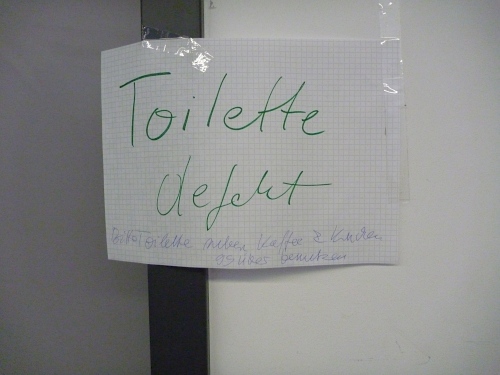 Toilette
defekt
Bitte Toilette neben Kaffee & Kuchen
benutzen